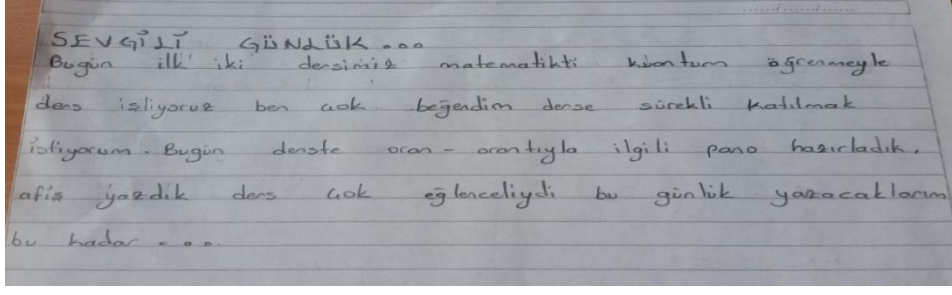 SEVGİLİ GÜNLÜK...
Bugün ilk iki dersimiz matematikti kuantum öğrenmeyle
ders işliyoruz ben çok beğendim derse sürekli katılmak
istiyorum. Bugün derste oran-orantıyla ilgili pano hazırladık,
afiş yazdık ders çok eğlenceliydi bu günlük yazacaklarım
bu kadar...